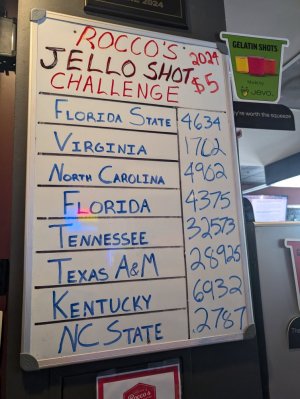 2024
ROCCO'S 2024
JELLO SHOT $5
CHALLENGE
FLORIDA STATE 4634
VIRGINIA 1762
NORTH CAROLINA 4902
FLORIDA 4375
TENNESSEE 32573
TEXAS A&M 28925
KENTUCKY 6932
NC STATE 2787
GELATIN SHOTS
Made by
jevo
're worth the squeeze
Rocco's